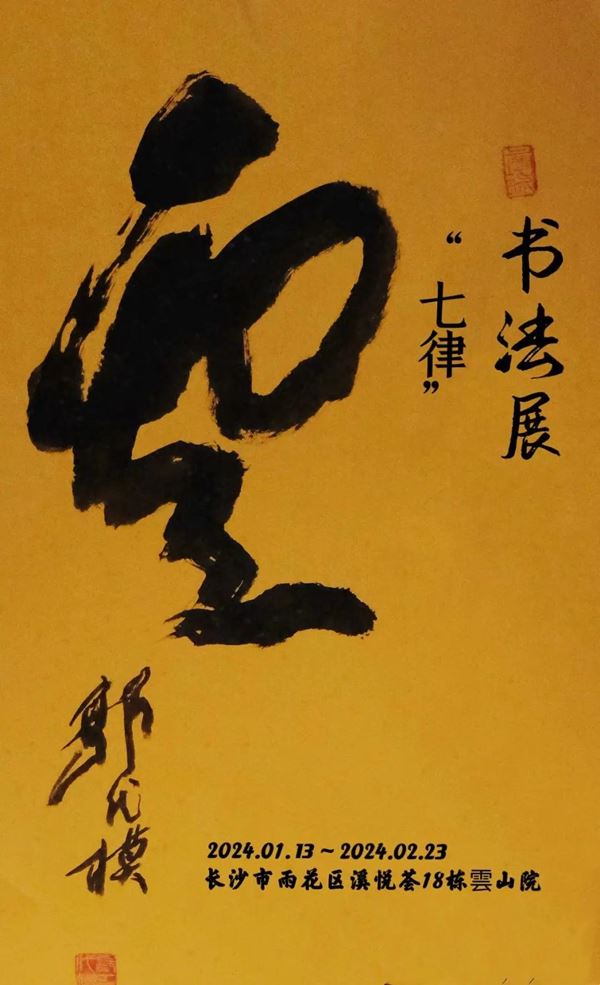 书法展
“七律”
郭代模
2024.01.13 ~ 2024.02.23
长沙市雨花区溪悦荟18栋雲山院